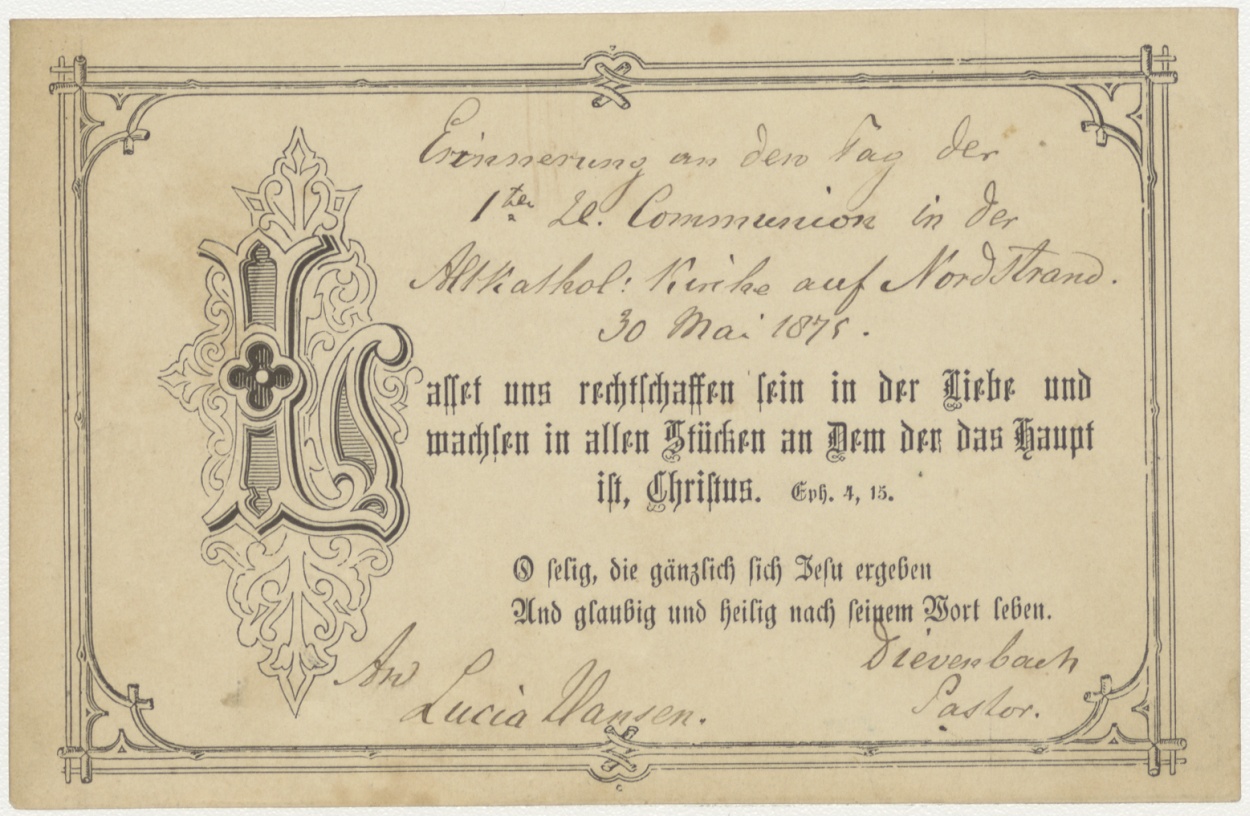 Erinnerung an den Tag der
1ten H. Communion in der
Altkathol: Kirche auf Nordstrand.
30 Mai 1875.
Lasset uns rechtschaffen sein in der Liebe und
wachsen in allen Stücken an Dem der das Haupt
ist, Christus. Eph. 4, 15.
O selig, die gänzlich sich Jesu ergeben
And glaubig und heilig nach seinem Wort leben.
Dievenbach
Pastor.
An
Lucia Hansen.